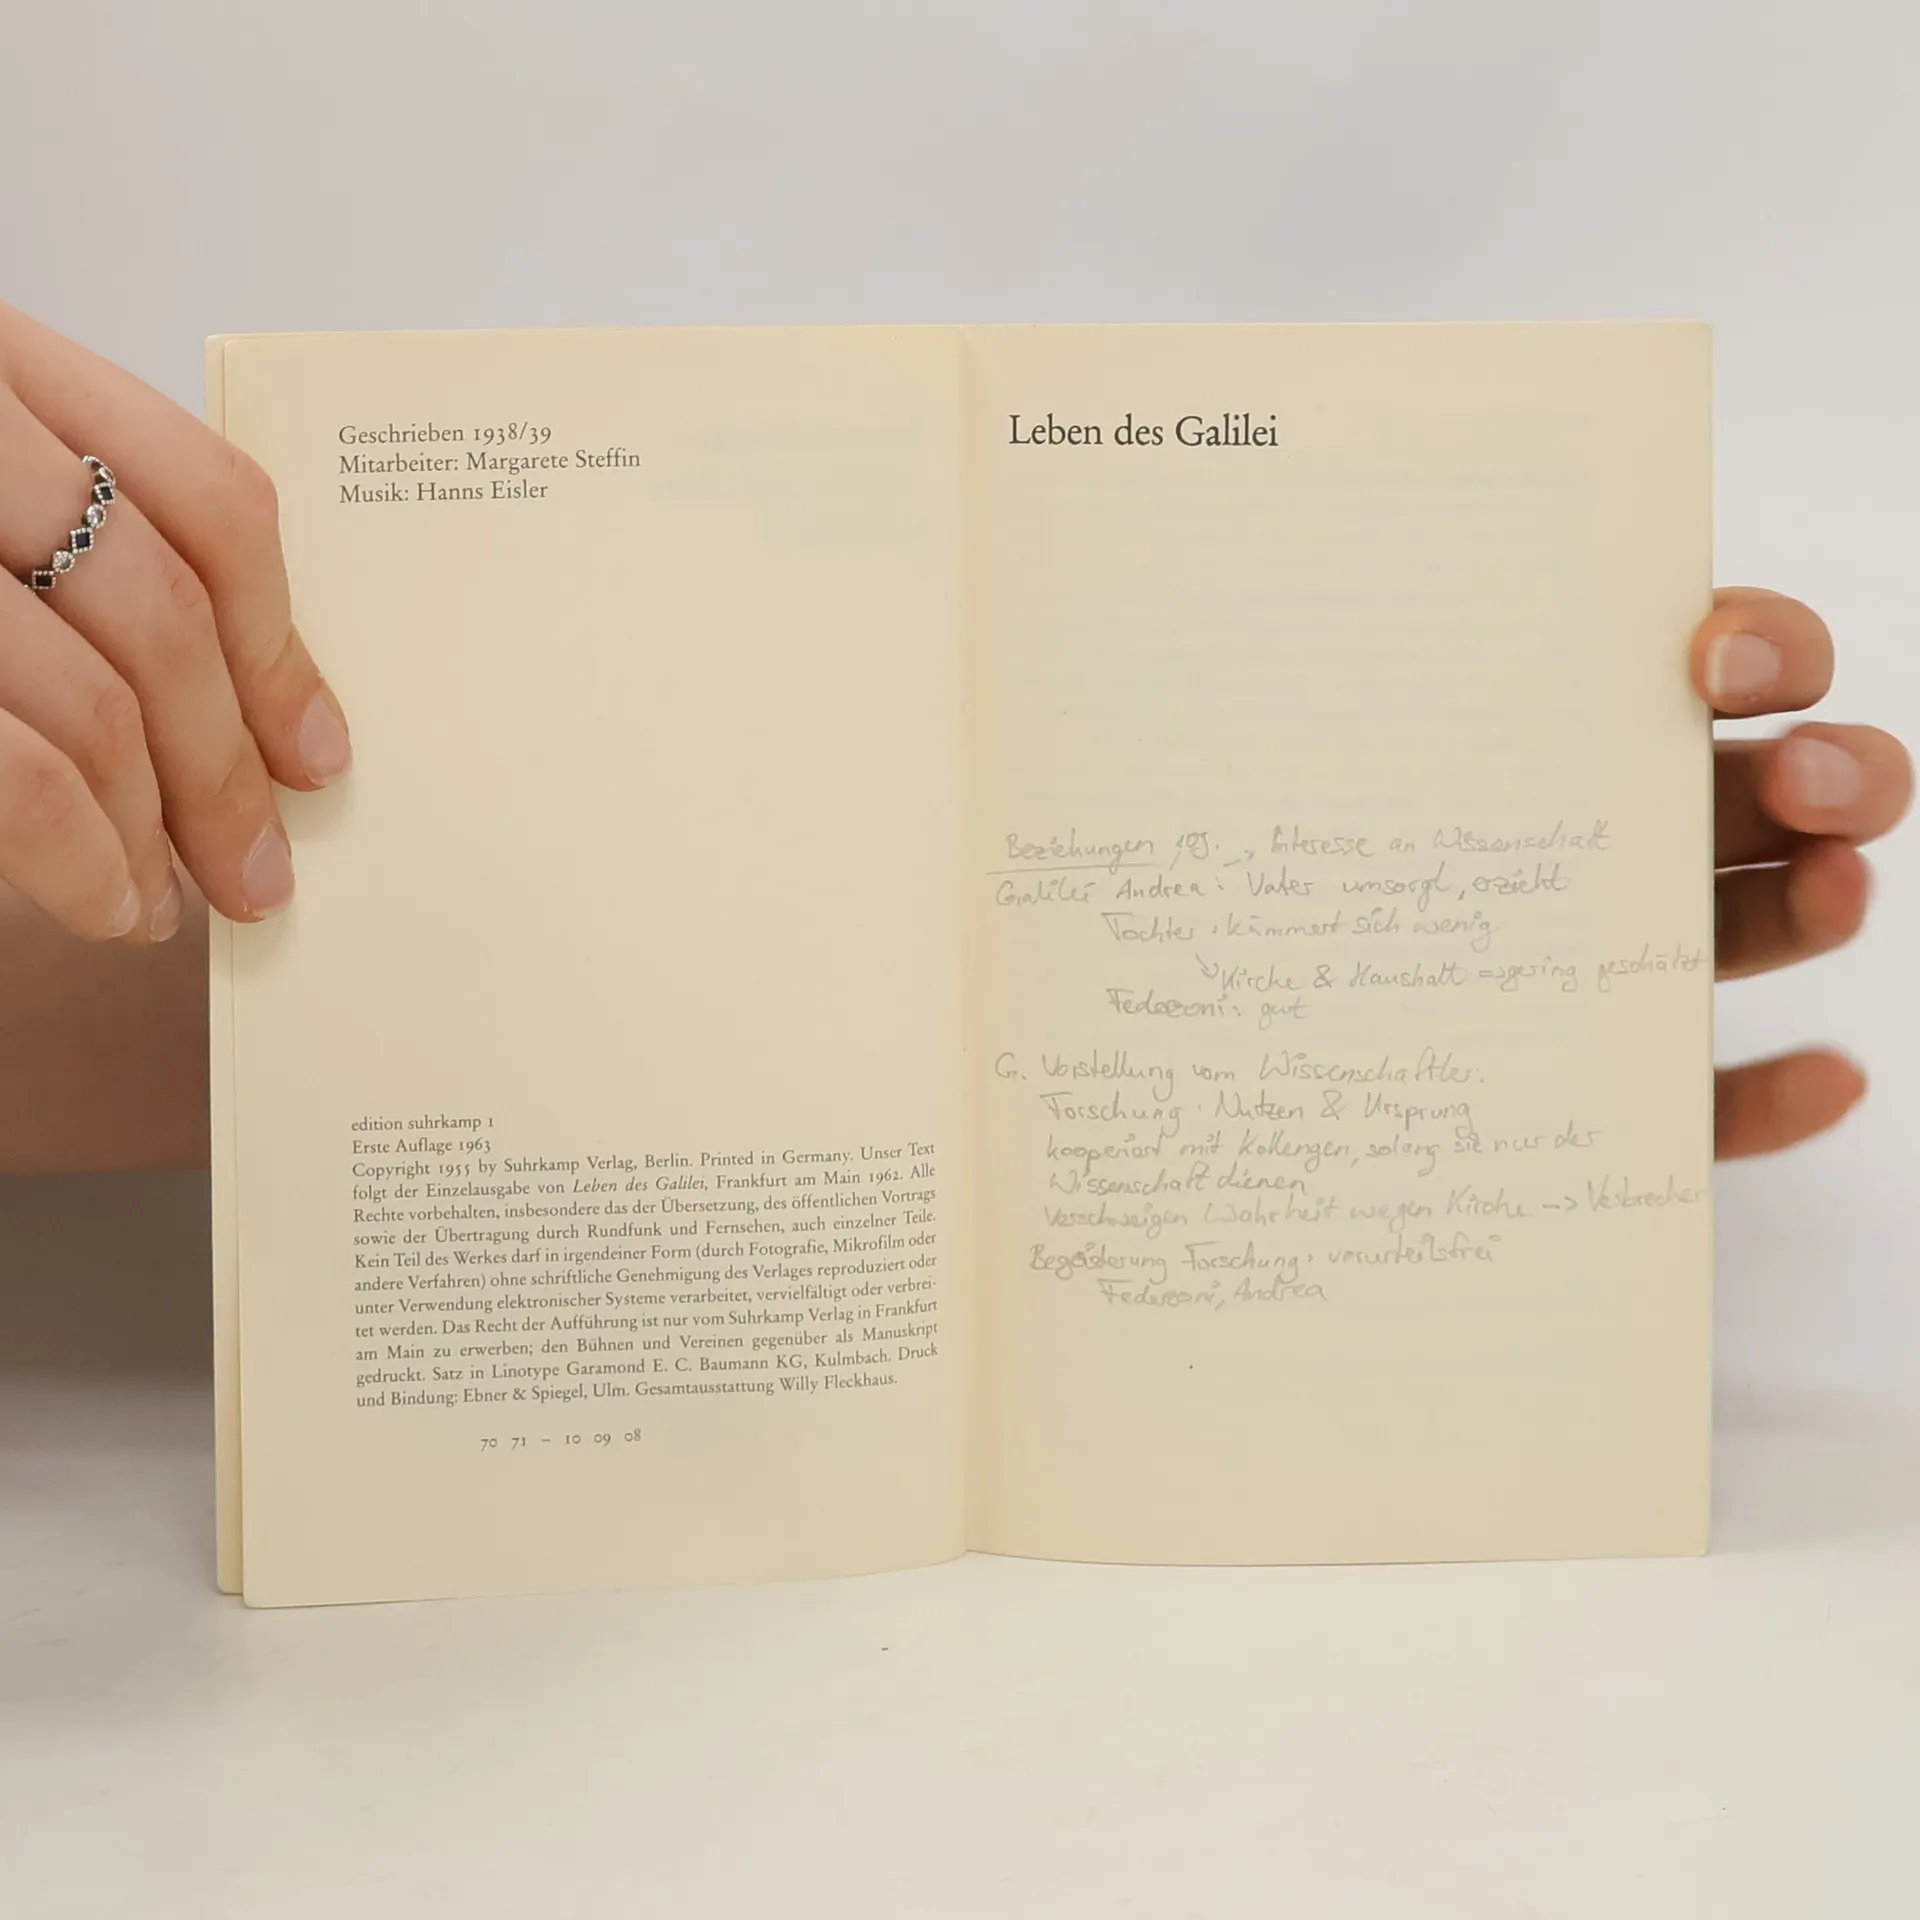 Geschrieben 1938/39
Mitarbeiter: Margarete Steffin
Musik: Hanns Eisler
edition suhrkamp 1
Erste Auflage 1963
Copyright 1955 by Suhrkamp Verlag, Berlin. Printed in Germany. Unser Text
folgt der Einzelausgabe von Leben des Galilei, Frankfurt am Main 1962. Alle
Rechte vorbehalten, insbesondere das der Übersetzung, des öffentlichen Vortrags
sowie der Übertragung durch Rundfunk und Fernsehen, auch einzelner Teile.
Kein Teil des Werkes darf in irgendeiner Form (durch Fotografie, Mikrofilm oder
andere Verfahren) ohne schriftliche Genehmigung des Verlages reproduziert oder
unter Verwendung elektronischer Systeme verarbeitet, vervielfältigt oder verbrei-
tet werden. Das Recht der Aufführung ist nur vom Suhrkamp Verlag in Frankfurt
am Main zu erwerben; den Bühnen und Vereinen gegenüber als Manuskript
gedruckt. Satz in Linotype Garamond E. C. Baumann KG, Kulmbach. Druck
und Bindung: Ebner & Spiegel, Ulm. Gesamtausstattung Willy Fleckhaus.
70 71 – 10 09 08
Leben des Galilei
Beziehungen -> Interesse an Wissenschaft
Galilei Andrea: Vater umsorgt, erzieht
Tochter: kümmert sich wenig
Kirche & Haushalt => gering geschätzt
Federzoni: gut
G. Vorstellung vom Wissenschaftler:
Forschung: Nutzen & Ursprung
kooperiert mit Kollengen, solang sie nur der
Wissenschaft dienen
Verschweigen Wahrheit wegen Kirche -> Verbrecher
Begeisterung Forschung: vorurteilsfrei
Federzoni, Andrea